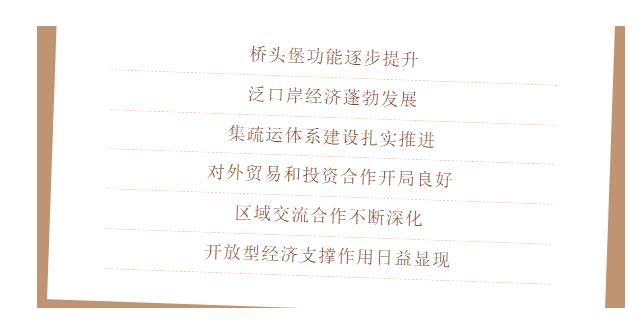 桥头堡功能逐步提升
泛口岸经济蓬勃发展
集疏运体系建设扎实推进
对外贸易和投资合作开局良好
区域交流合作不断深化
开放型经济支撑作用日益显现